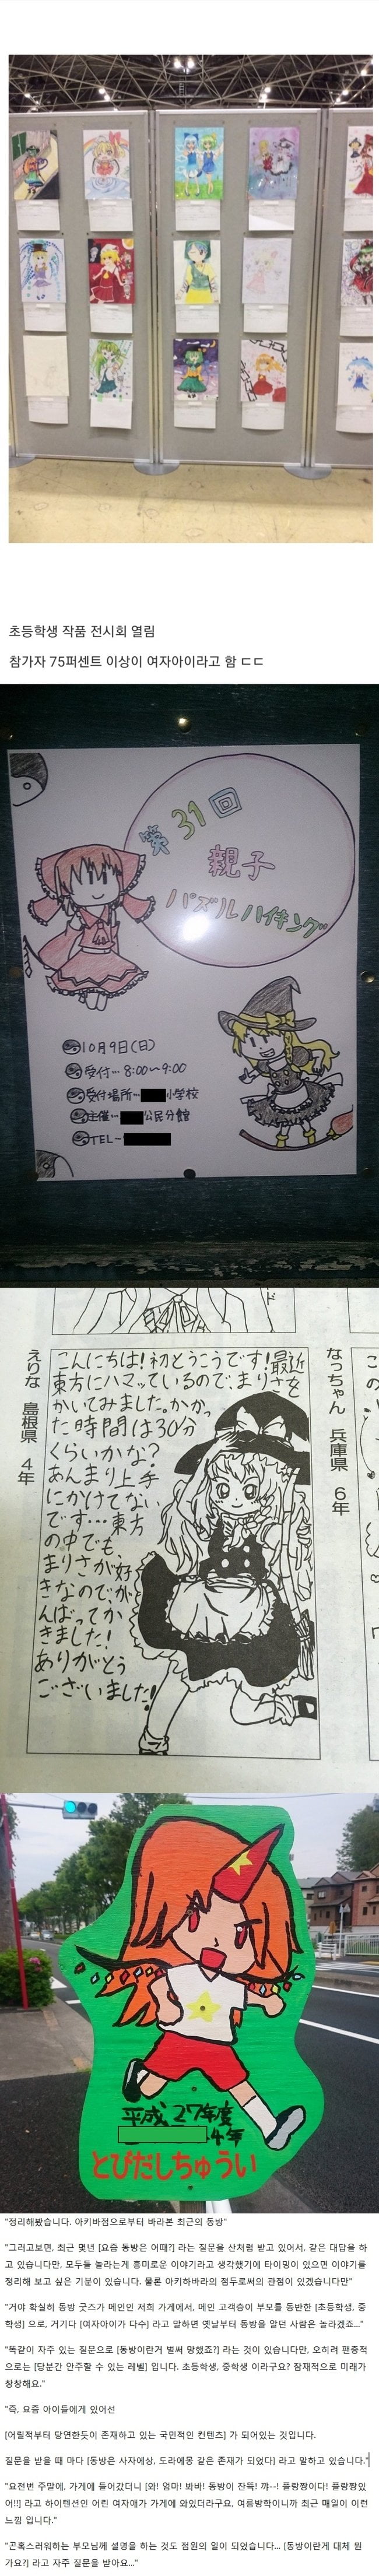 초등학생 작품 전시회 열림
참가자 75퍼센트 이상이 여자아이라고 함 ㄷㄷ
第31回
親子
パズルハイキング
10月9日(日)
受付…8:00〜9:00
受付場所… 小学校
主催… 公民分館
TEL-
なっちゃん 兵庫県 6年
こんにちは!初とうこうです!最近
東方にハマッているので、まりさを
かいてみました。かかっ
た時間は30分
くらいかな?
あんまり上手
にかけてない
です…東方
の中でも
まりさが好
きなので、が
んばってか
きました!
ありがとう
ございました!
えりな 島根県 4年
平成27年度
4年
とびだしちゅうい
"정리해봤습니다. 아키바점으로부터 바라본 최근의 동방"
"그러고보면, 최근 몇년 [요즘 동방은 어때?] 라는 질문을 산처럼 받고 있어서, 같은 대답을 하
고 있습니다만, 모두들 놀라는게 흥미로운 이야기라고 생각했기에 타이밍이 있으면 이야기를
정리해 보고 싶은 기분이 있습니다. 물론 아키하바라의 점두로써의 관점이 있겠습니다만"
"거야 확실히 동방 굿즈가 메인인 저희 가게에서, 메인 고객층이 부모를 동반한 [초등학생, 중
학생] 으로, 거기다 [여자아이가 다수] 라고 말하면 옛날부터 동방을 알던 사람은 놀라겠죠..."
"똑같이 자주 있는 질문으로 [동방이란거 벌써 망했죠?] 라는 것이 있습니다만, 오히려 팬증적
으로는 [당분간 안주할 수 있는 레벨] 입니다. 초등학생, 중학생 이라구요? 잠재적으로 미래가
창창해요."
"즉, 요즘 아이들에게 있어선
[어릴적부터 당연한듯이 존재하고 있는 국민적인 컨텐츠] 가 되어있는 것입니다.
질문을 받을 때 마다 [동방은 사자에상, 도라에몽 같은 존재가 되었다] 라고 말하고 있습니다."
"요전번 주말에, 가게에 들어갔더니 [와! 엄마! 봐바! 동방이 잔뜩! 꺄--! 플랑짱이다! 플랑짱있
어!!] 라고 하이텐션인 어린 여자애가 가게에 와있더라구요, 여름방학이니까 최근 매일이 이런
느낌 입니다."
"곤혹스러워하는 부모님께 설명을 하는 것도 점원의 일이 되었습니다... [동방이란게 대체 뭔
가요?] 라고 자주 질문을 받아요..."